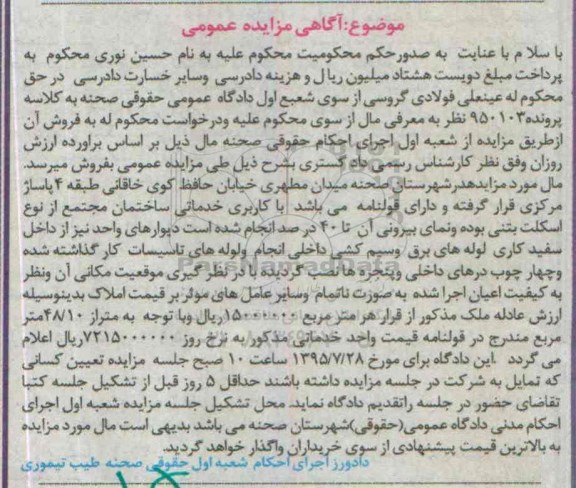 موضوع:آگاهی مزایده عمومی
با سلا م با عنایت به صدورحکم محکومیت محکوم علیه به نام حسین نوری محکوم به
پرداخت مبلغ دویست هشتاد میلیون ریال و هزینه دادرسی وسایر خسارت دادرسی در حق
محکوم له عینعلی فولادی گروسی از سوی شعبع اول دادگاه عمومی حقوقی صحنه به کلاسه
پرونده۹۵۰۱۰۳ نظر به معرفی مال از سوی محکوم علیه ودرخواست محکوم له به فروش آن
ازطریق مزایده از شعبه اول اجرای احکام حقوقی صحنه مال ذیل بر اساس براورده ارزش
روزان وفق نظر کارشناس رسمی داد گستری بشرح ذیل طی مزایده عمومی بفروش میرسد.
مال مورد مزایدهدرشهرستان صحنه میدان مطهری خیابان حافظ کوی خاقانی طبقه ۴پاساژ
مرکزی قرار گرفته و دارای قولنامه می باشد با کاربری خدماتی ساختمان مجتمع از نوع
اسکلت بتنی بوده ونمای بیرونی آن تا ۴۰ در صد انجام شده است دیوارهای واحد نیز از داخل
سفید کاری لوله های برق وسیم کشی داخلی انجام ولوله های تاسیسات کار گذاشته شده
وچهار چوب درهای داخلی وپنجره ها نصب گردیده با در نظر گیری موقعیت مکانی آن ونظر
به کیفیت اعیان اجرا شده به صورت ناتمام وسایر عامل های موثر بر قیمت املاک بدینوسیله
ارزش عادله ملک مذکور از قرار هر متر مربع ۱۵۰۰۰۰۰۰ریال وبا توجه به متراز ۴۸/۱۰متر
مربع مندرج در قولنامه قیمت واحد خدماتی مذکور به نرخ روز ۷۲۱۵۰۰۰۰۰۰ریال اعلام
می گردد .این دادگاه برای مورخ ۱۳۹۵/۷/۲۸ ساعت ۱۰ صبح جلسه مزایده تعیین کسانی
که تمایل به شرکت در جلسه مزایده داشته باشند حداقل ۵ روز قبل از تشکیل جلسه کتبا
تقاضای حضور در جلسه راتقدیم دادگاه نماید. محل تشکیل جلسه مزایده شعبه اول اجرای
احکام مدنی دادگاه عمومی(حقوقی)شهرستان صحنه می باشد بدیهی است مال مورد مزایده
به بالاترین قیمت پیشنهادی از سوی خریداران واگذار خواهد گردید.
دادورز اجرای احکام شعبه اول حقوقی صحنه طیب تیموری